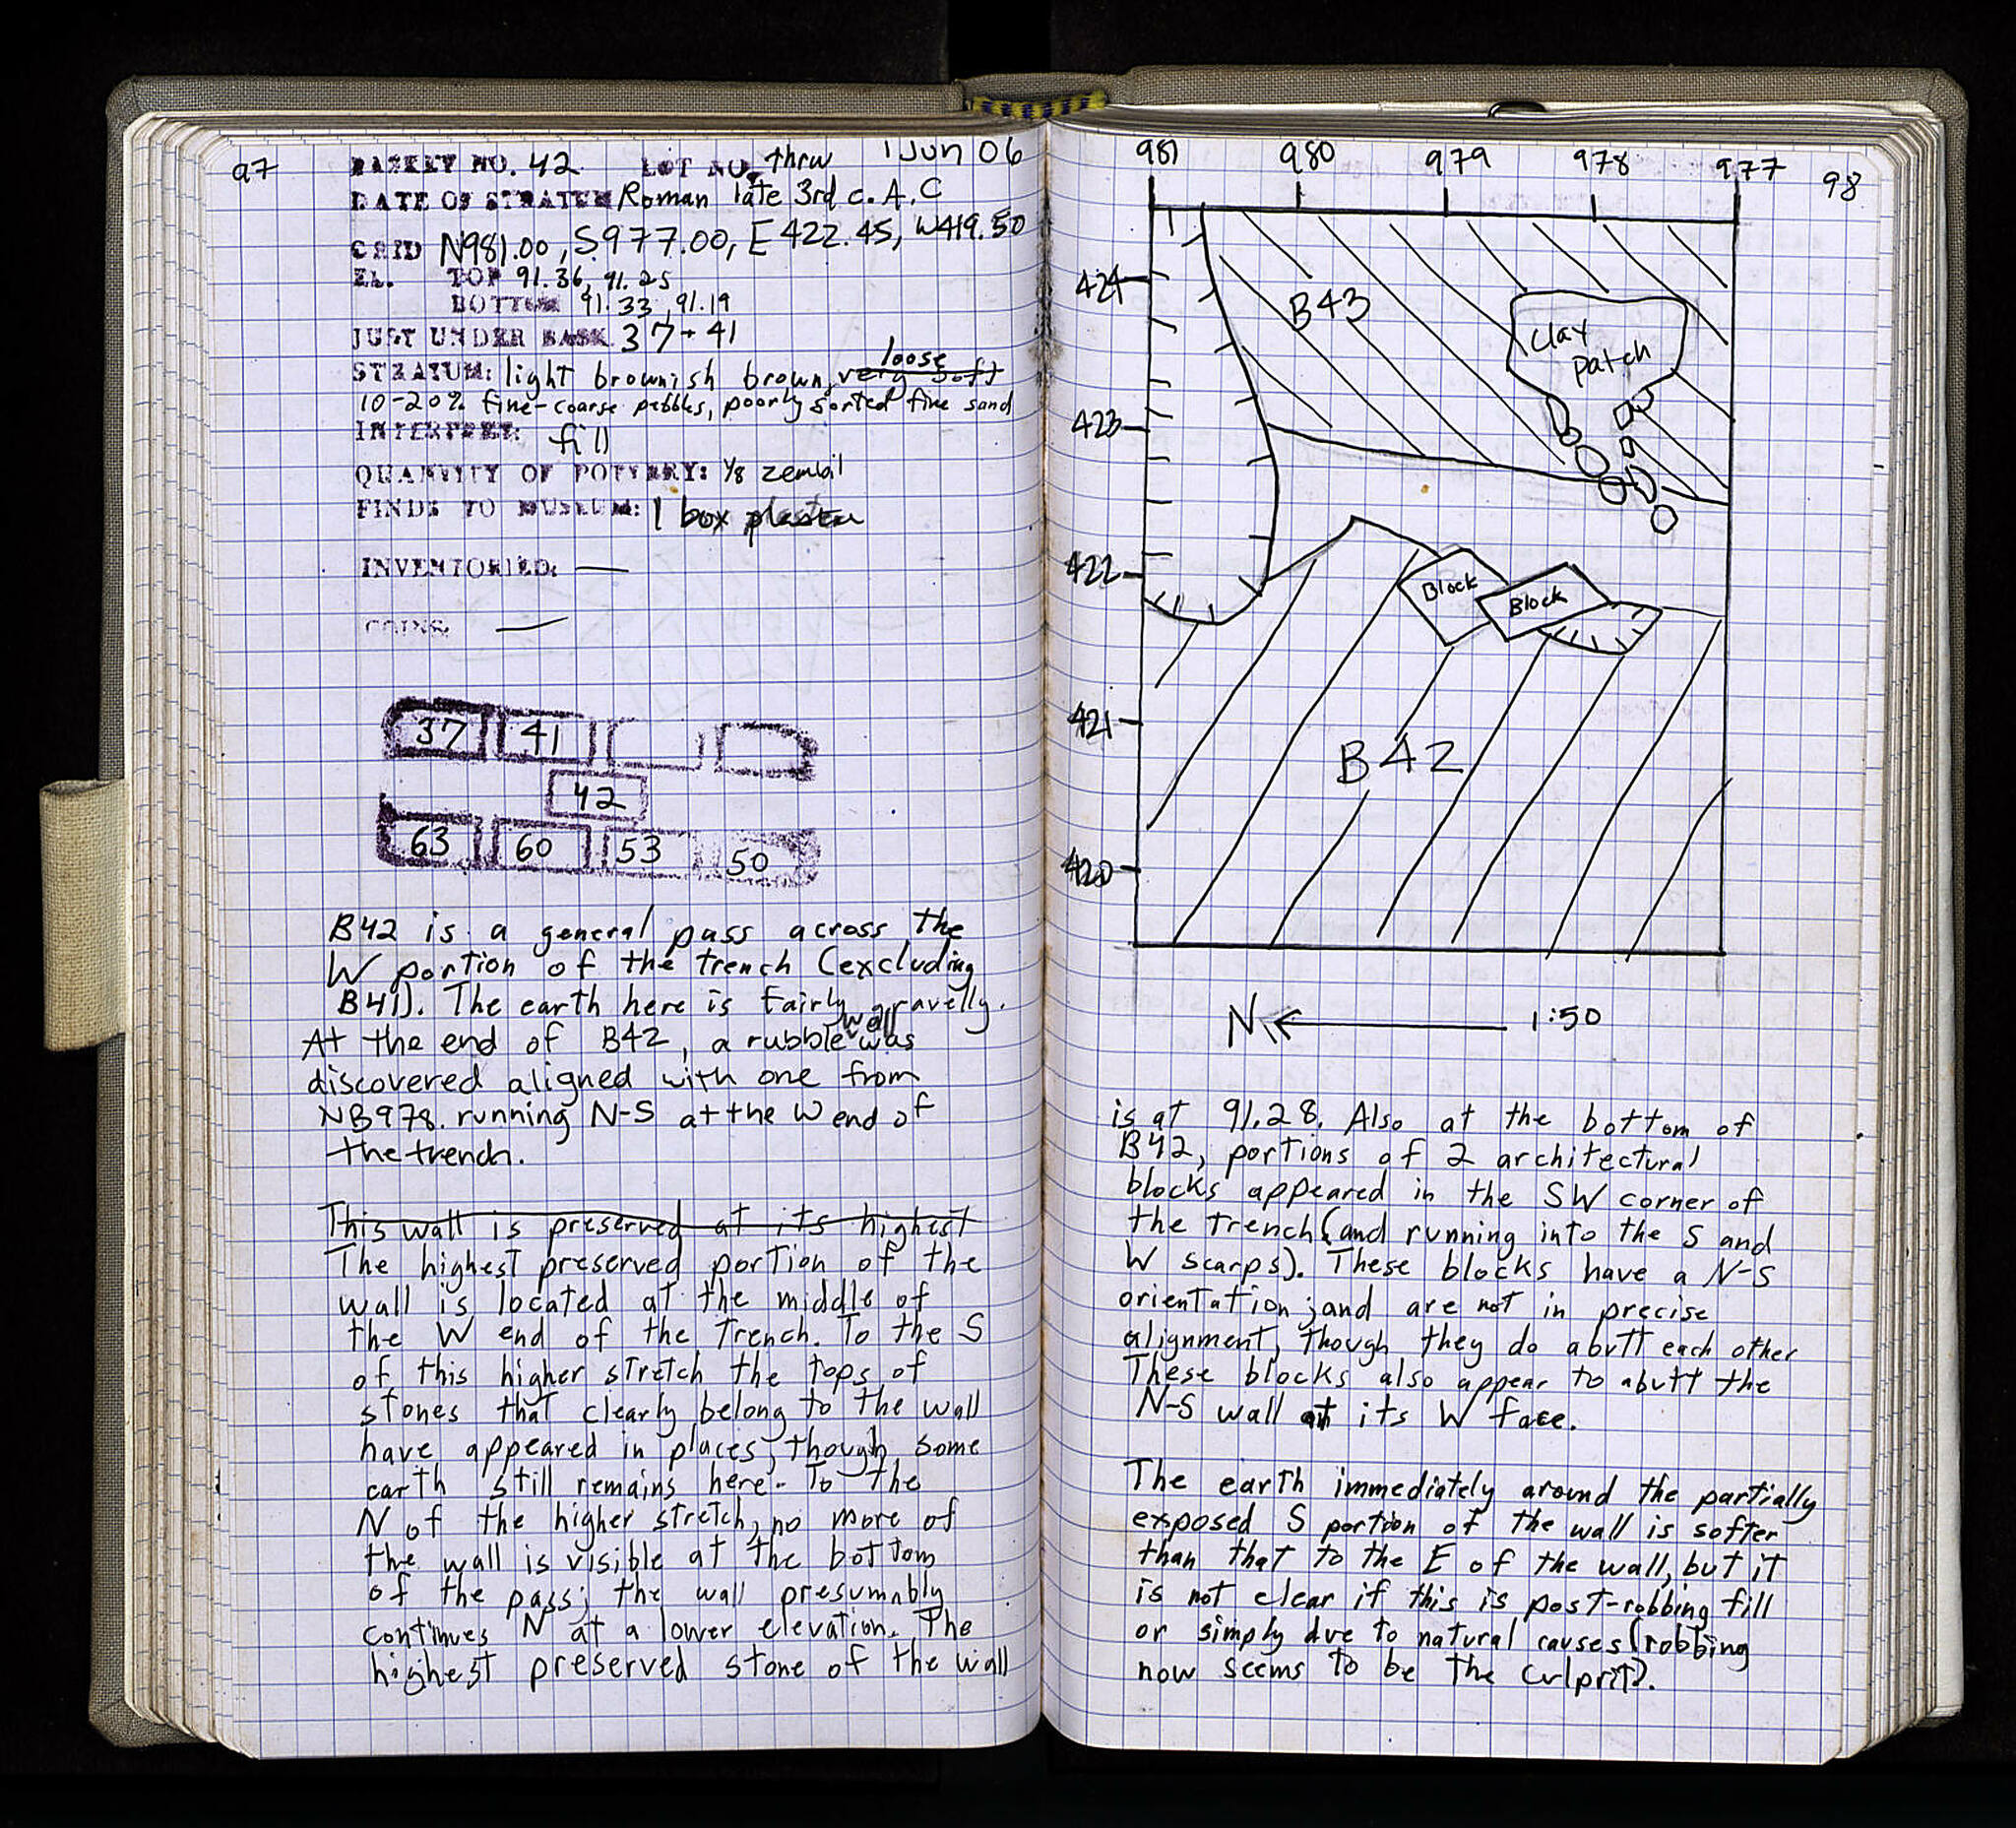 97
BASKET NO. 42 LOT NO. threw 1 Jun 06
DATE OF STRATUM Roman late 3rd c. A.C
GRID N981.00, S977.00, E422.45, W419.50
EL. TOP 91.36, 91.25
BOTTOM 91.33, 91.19
JUST UNDER BASK. 37+41
STRATUM: light brownish brown, very soft loose
10-20% fine-coarse pebbles, poorly sorted fine sand
INTERPRET: fill
QUANTITY OF POTTERY: 1/8 zembil
FINDS TO MUSEUM: 1 box plaster
INVENTORIED: —
COINS: —
37 41
42
63 60 53 50
B42 is a general pass across the
W portion of the trench (excluding
B41). The earth here is fairly gravelly.
At the end of B42, a rubble wall was
discovered aligned with one from
NB978. running N-S at the W end of
the trench.
This wall is preserved at its highest
The highest preserved portion of the
wall is located at the middle of
the W end of the trench. To the S
of this higher stretch the tops of
stones that clearly belong to the wall
have appeared in places, though some
earth still remains here. To the
N of the higher stretch, no more of
the wall is visible at the bottom
of the pass; the wall presumably
continues N at a lower elevation. The
highest preserved stone of the wall
981 980 979 978 977
98
424
B43
Clay
patch
423
422
Block
Block
421
B42
420
N 1:50
is at 91.28. Also at the bottom of
B42, portions of 2 architectural
blocks appeared in the SW corner of
the trench (and running into the S and
W scarps). These blocks have a N-S
orientation; and are not in precise
alignment, though they do abutt each other
These blocks also appear to abutt the
N-S wall at its W face.
The earth immediately around the partially
exposed S portion of the wall is softer
than that to the E of the wall, but it
is not clear if this is post-robbing fill
or simply due to natural causes (robbing
now seems to be the culprit).